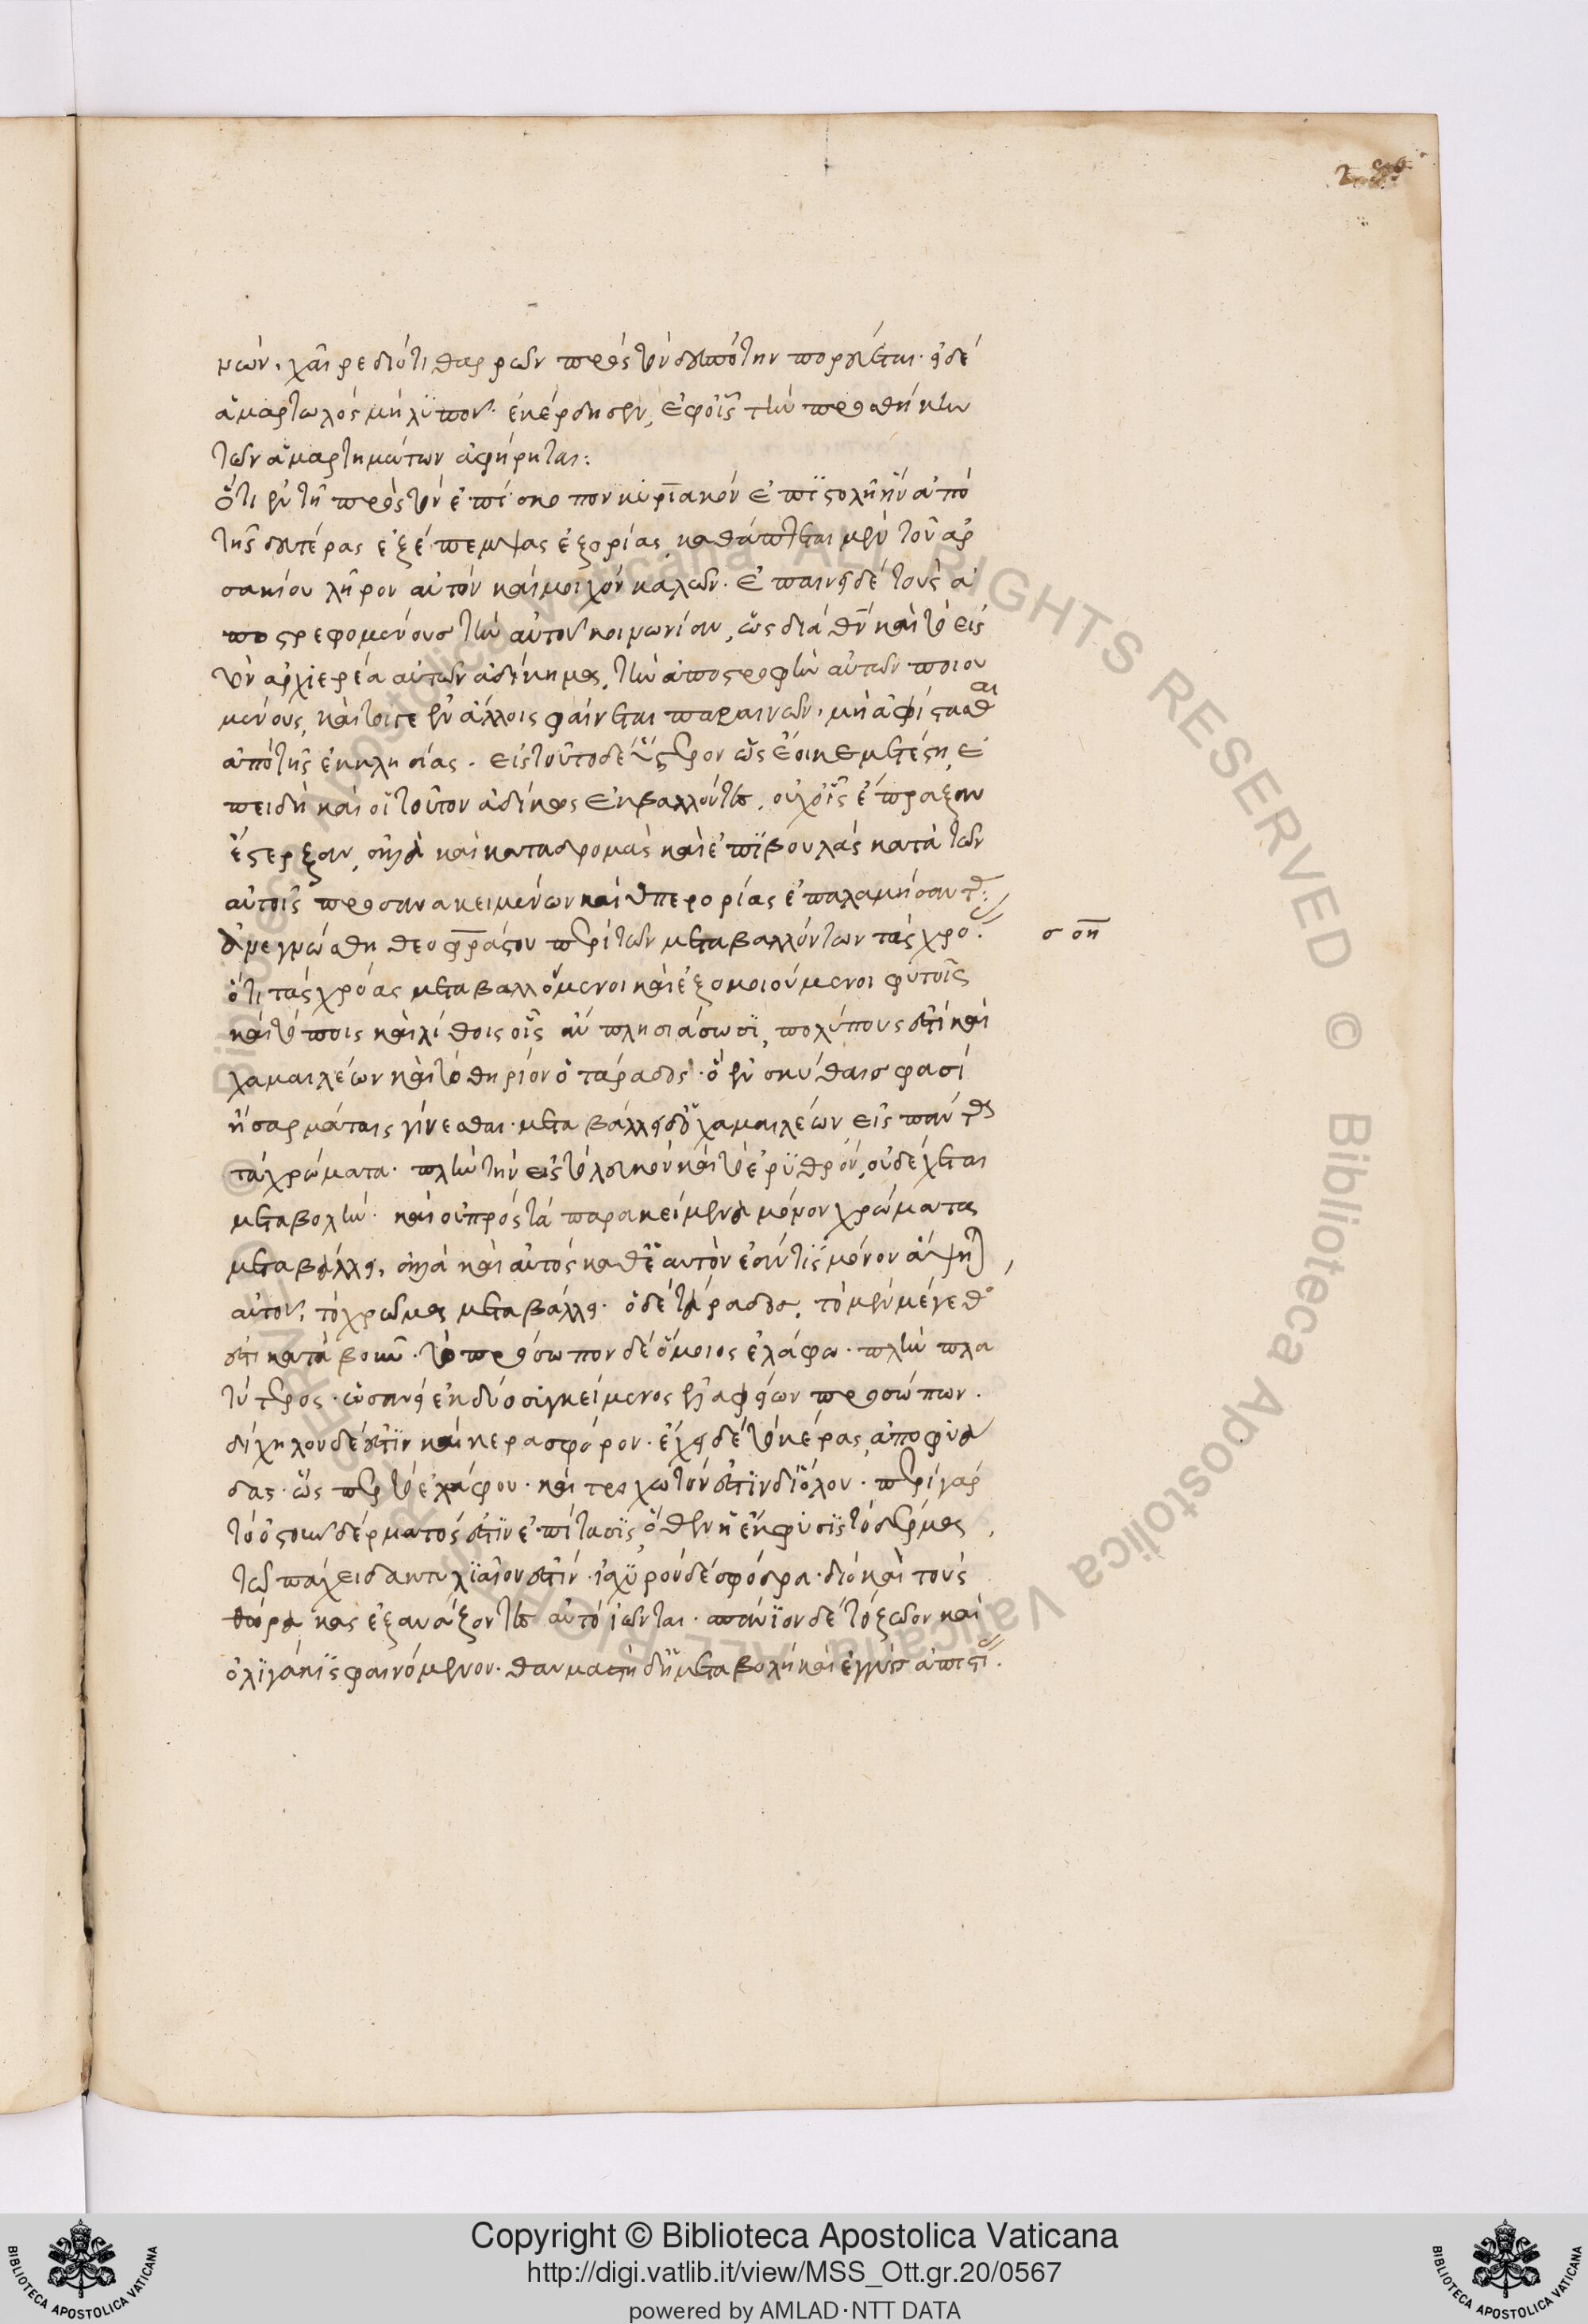 μῶν. χαῖρε διότι θαρρῶν πρὸς τὸν δεσπότην πορεύεται. ὁ δὲ
ἁμαρτωλὸς μὴ λυποῦ. ἐκέρδησεν, ἐφ' οἷς τὴν προσθήκην
τῶν ἁμαρτημάτων ἀφήρηται:
ὅτι ἐν τῇ πρὸς τὸν ἐπίσκοπον κυριακὸν ἐπιστολῇ ἣν ἀπὸ
τῆς δευτέρας ἐξέπεμψας ἐξορίας, καθάπτεται μὲν τοῦ ἀρ
σακίου λῆρον αὐτὸν καὶ μοιχὸν καλῶν. ἐπαινεῖ δὲ τοὺς ἀ
ποστρεφομένους τὴν αὐτοῦ κοινωνίαν, ὡς διὰ θν καὶ τὸ εἰς
τὸν ἀρχιερέα αὐτῶν ἀδίκημα, τὴν ἀποστροφὴν αὐτῶν ποιου
μένους, καίτοιγε ἐν ἄλλοις φαίνεται παραινῶν, μὴ ἀφίστασθαι
ἀπὸ τῆς ἐκκλησίας. εἰς τοῦτο δὲ ὕστερον ὡς ἔοικε μετέστη, ἐ
πειδὴ καὶ οἱ τοῦτον ἀδίκως ἐκβαλλόντες, οὐχ οἷς ἔπραξαν
ἔστερξαν, ἀλλὰ καὶ καταδρομὰς καὶ ἐπιβουλὰς κατὰ τῶν
αὐτοῖς προσανακειμένων καὶ ὑπερορίας ἐπαλαμήσαντο:
ἀνεγνώσθη θεοφράστου περὶ τῶν μεταβαλλόντων τὰς χρο.
σ οη
ὅτι τὰς χρόας μεταβαλλόμενοι καὶ ἐξομοιούμενοι φυτοῖς
καὶ τόποις καὶ λίθοις οἷς ἂν πλησιάσωσι, πολύπους ἐστὶ καὶ
χαμαιλέων καὶ τὸ θηρίον ὁ τάρανδος. ὃ ἐν σκύθαις φασὶ
ἢ σαρμάταις γίνεσθαι. μεταβάλλει δ' ὁ χαμαιλέων εἰς πάντα
τὰ χρώματα. πλὴν τὴν εἰς τὸ λευκὸν καὶ τὸ ἐρυθρὸν, οὐ δέχεται
μεταβολήν. καὶ οὐ πρὸς τὰ παρακείμενα μόνον χρώματα
μεταβάλλει, ἀλλὰ καὶ αὐτὸς καθ' ἑαυτὸν ἐάν τις μόνον ἅψηται,
αὐτοῦ, τὸ χρῶμα μεταβάλλει. ὁ δὲ τάρανδος, τὸ μὲν μέγεθος
ἐστὶ κατὰ βοῦν. τὸ πρόσωπον δὲ ὅμοιος ἐλάφῳ. πλὴν πλα
τύτερος. ὡσανεὶ ἐκ δύο συγκείμενος ἐλαφείων προσώπων.
δίχηλον δέ ἐστιν καὶ κερασφόρον. ἔχει δὲ τὸ κέρας ἀποφυά
δας. ὡς περ τὸ ἐλάφου. καὶ τριχωτόν ἐστιν δι' ὅλου. περὶ γὰρ
τὸ ὀστοῦν δέρματός ἐστιν ἐπίτασις, ὅθεν ἡ ἔκφυσις τὸ δέρμα,
τῷ πάχει δακτυλιαῖον ἐστίν. ἰσχυρὸν δὲ σφόδρα. διὸ καὶ τοὺς
θώρακας ἐξαναάζοντες αὐτὸ ἰῶνται. σπάνιον δὲ τὸ ζῶον καὶ
ὀλιγάκις φαινόμενον. θαυμαστὴ δ' ἡ μεταβολὴ καὶ ἐγγὺς ἀπιστί.
Copyright © Biblioteca Apostolica Vaticana
http://digi.vatlib.it/view/MSS_Ott.gr.20/0567
powered by AMLAD·NTT DATA